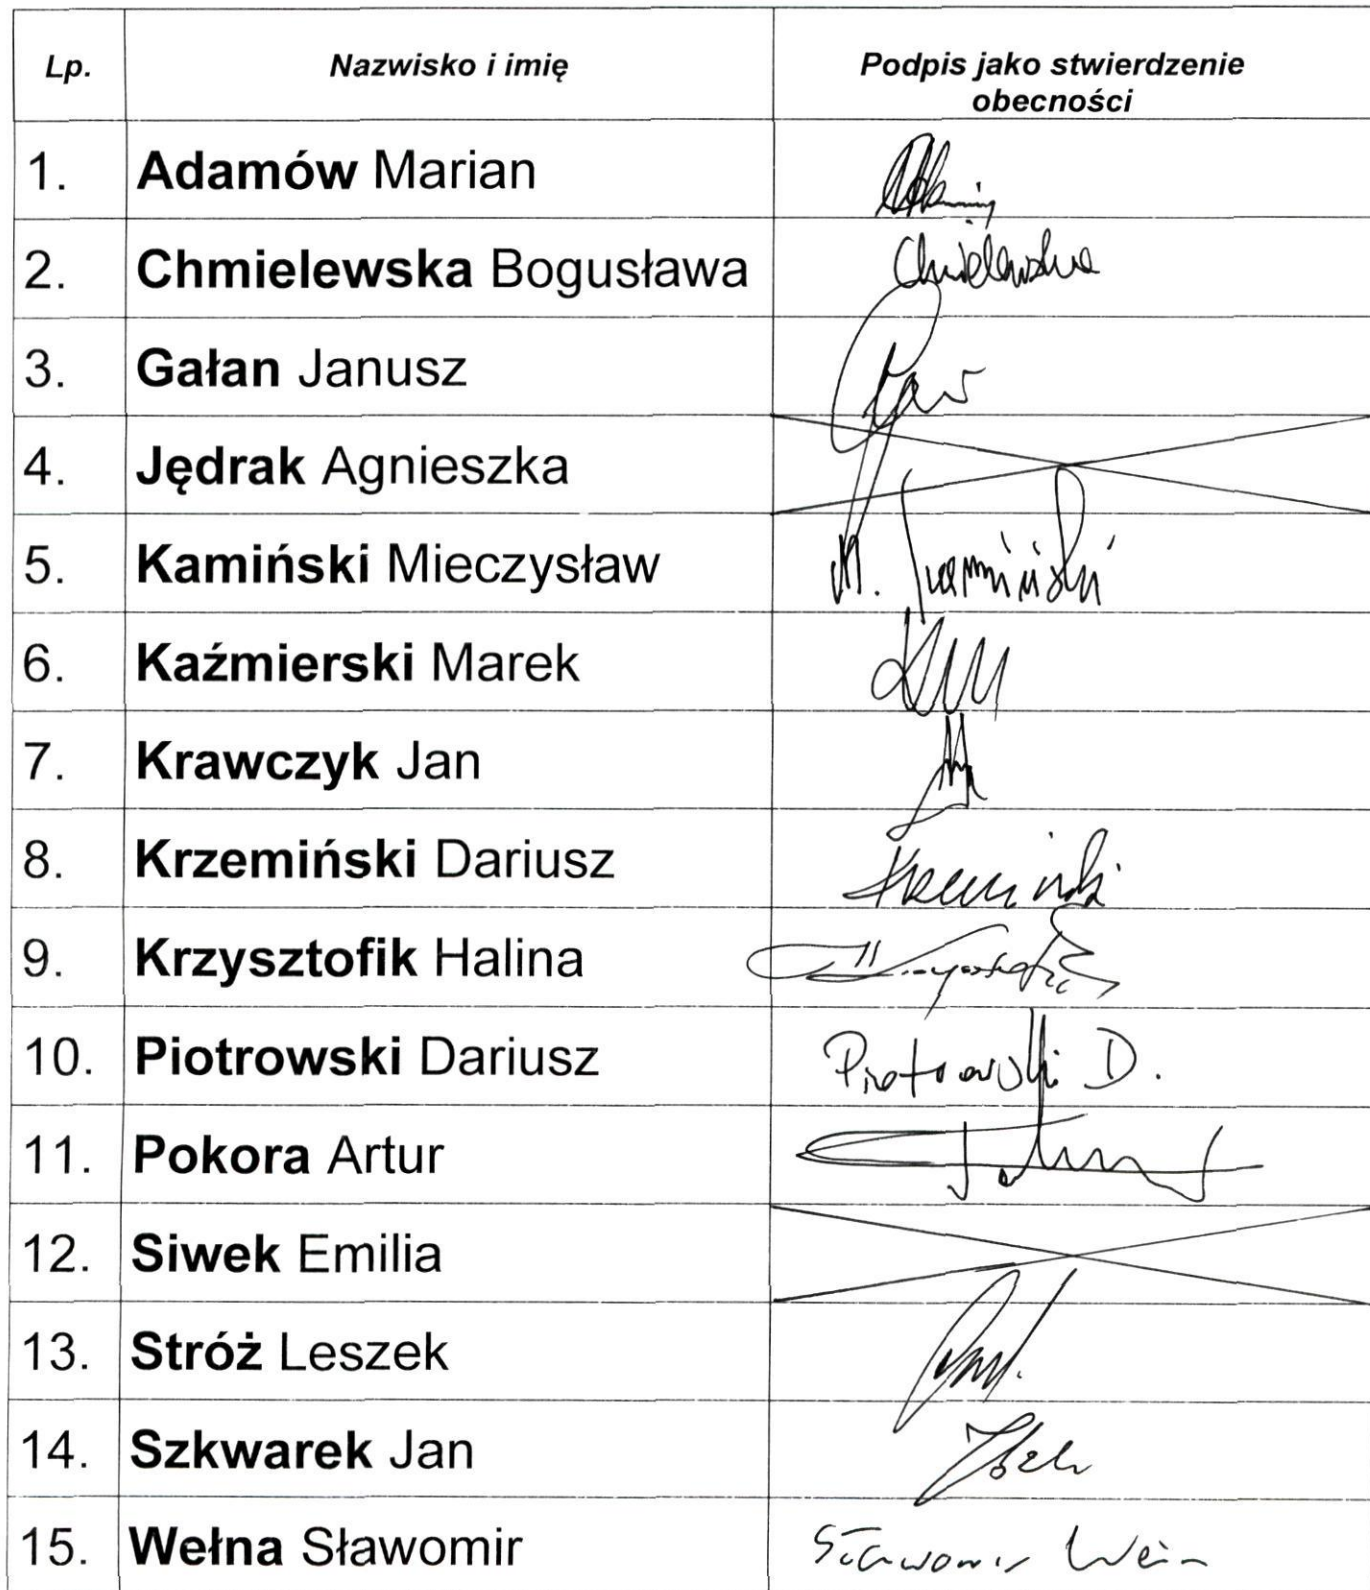 Lp. Nazwisko i imię Podpis jako stwierdzenie
obecności
1. Adamów Marian
2. Chmielewska Bogusława Chmielewska
3. Gałan Janusz
4. Jędrak Agnieszka
5. Kamiński Mieczysław M. Kamiński
6. Kaźmierski Marek
7. Krawczyk Jan
8. Krzemiński Dariusz
9. Krzysztofik Halina
10. Piotrowski Dariusz Piotrowski D.
11. Pokora Artur
12. Siwek Emilia
13. Stróż Leszek
14. Szkwarek Jan
15. Wełna Sławomir Sławomir